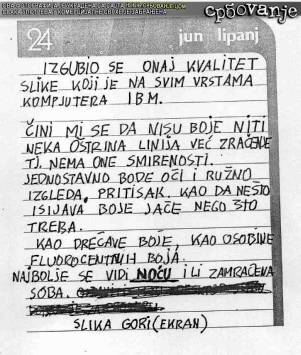 србовање
24
jun lipanj
IZGUBIO SE ONAJ KVALITET
SLIKE KOJI JE NA SVIM VRSTAMA
KOMPJUTERA IBM.
ČINI MI SE DA NISU BOJE NITI
NEKA OŠTRINA LINIJA VEĆ ZRAČENJE
TJ. NEMA ONE SMIRENOSTI.
JEDNOSTAVNO BODE OČI I RUŽNO
IZGLEDA, PRITISAK. KAO DA NEŠTO
ISIJAVA BOJE JAČE NEGO ŠTO
TREBA.
KAO DREČAVE BOJE, KAO OSOBINE
FLUOROCENTNIH BOJA.
NAJBOLJE SE VIDI NOĆU ILI ZAMRAČENA
SOBA.
SLIKA GORI (EKRAN)